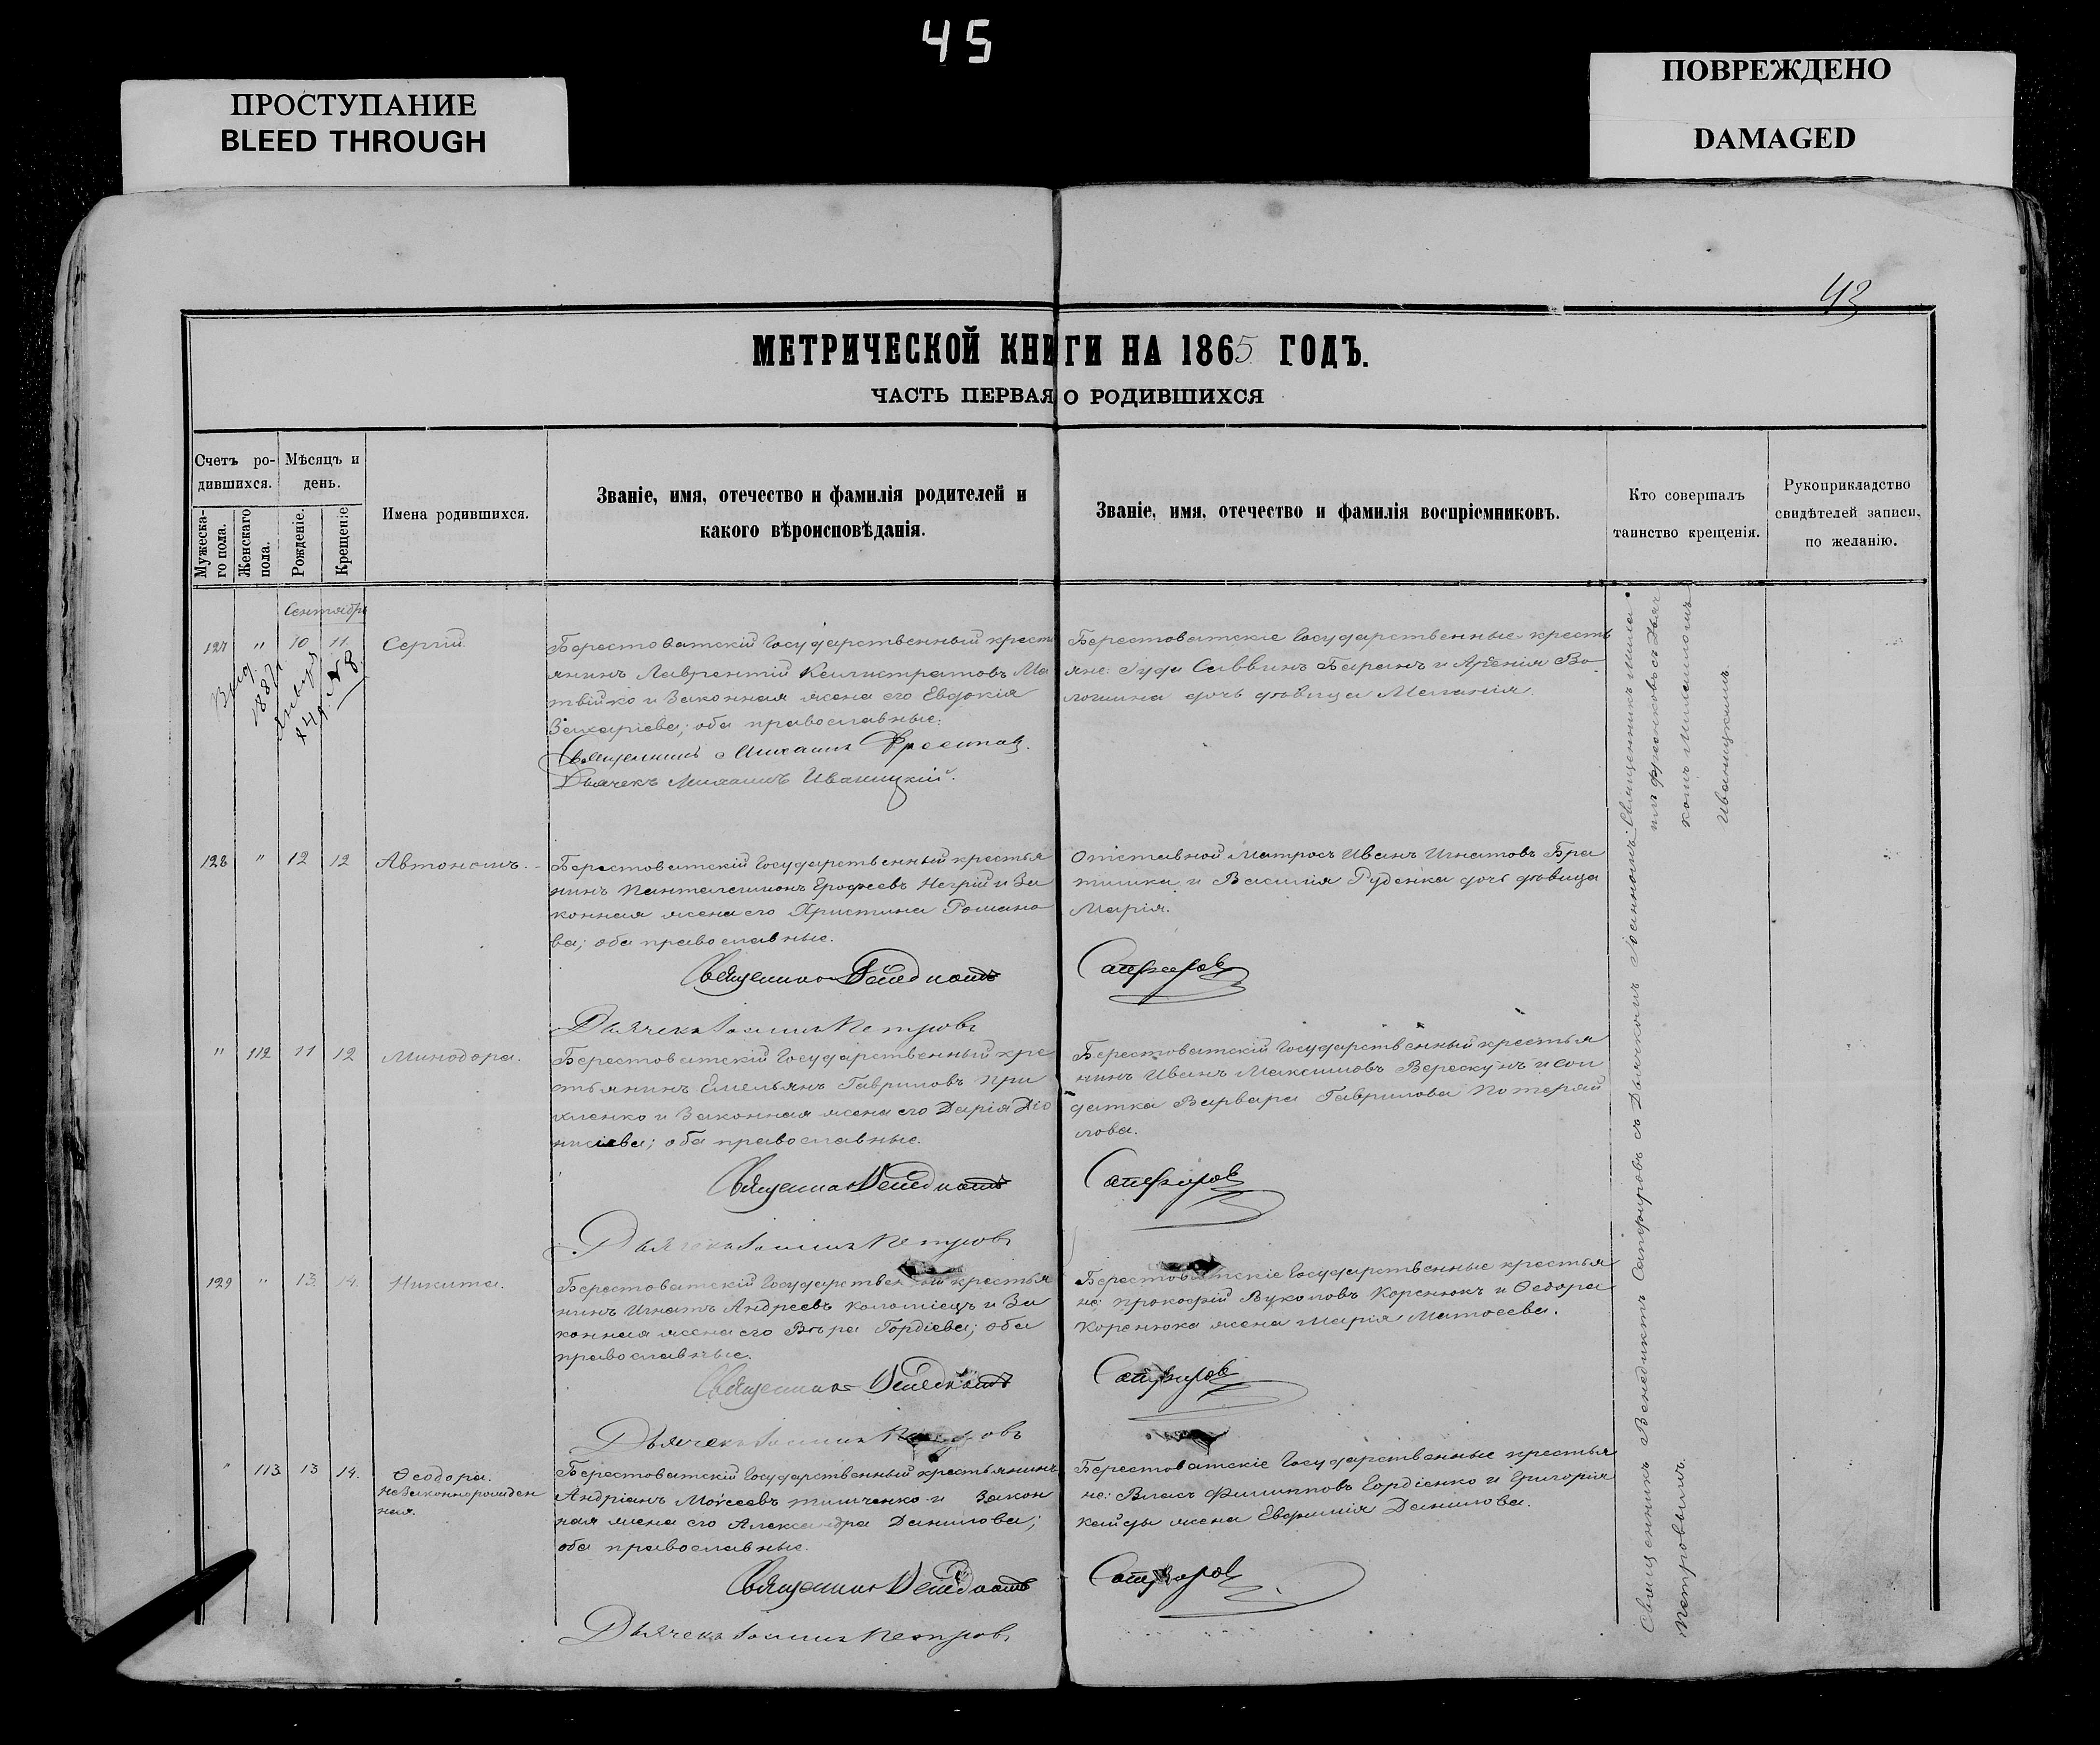 45
ПРОСТУПАНИЕ
BLEED THROUGH
ПОВРЕЖДЕНО
DAMAGED
43
МЕТРИЧЕСКОЙ КНИГИ НА 1865 ГОДЪ.
ЧАСТЬ ПЕРВАЯ О РОДИВШИХСЯ
Счетъ ро-
дившихся.
Мужеска-
го пола.
Женскаго
пола.
Мѣсяцъ и
день.
Рожденіе.
Крещеніе
Имена родившихся.
Званіе, имя, отечество и фамилія родителей и
какого вѣроисповѣданія.
Званіе, имя, отечество и фамилія воспріемниковъ.
Кто совершалъ
таинство крещенія.
Рукоприкладство
свидѣтелей записи,
по желанію.
Сентябрь
127 " 10 11 Сергій.
Выд.
1887
Января
14 № 8
Берестоватскій Государственный кресть
янинъ Лаврентій Калистратовъ Ма
твійко и Законная жена его Евдокія
Захаріева; оба православные.
Священникъ Михаилъ
Дьячекъ Михаилъ Иваницкій.
Берестоватскіе Государственные кресть
яне: Іуда Саввинъ Баранъ и Арсенія Во
логшина дочь дѣвица Меланія.
128 " 12 12 Автономъ.
Берестоватскій Государственный крестья
нинъ Пантелеимонъ Ерофеевъ Негрій и За
конная жена его Христина Романо
ва; оба православные.
Священникъ Венедиктъ Сапфировъ
Дьячекъ Іоаннъ Петровъ
Отставной Матросъ Иванъ Игнатовъ Бра
тишка и Василія Руденка дочь дѣвица
Марія.
" 112 11 12 Минодора.
Берестоватскій Государственный кре
стьянинъ Емельянъ Гавриловъ При
хленко и Законная жена его Дарія Діо
нисіева; оба православные.
Священникъ Венедиктъ Сапфировъ
Дьячекъ Іоаннъ Петровъ
Берестоватскій Государственный крестья
нинъ Иванъ Максимовъ Верескунъ и сол
датка Варвара Гаврилова Потеряй
лова.
129 " 13 14. Никита.
Берестоватскій Государственный крестья
нинъ Игнатъ Андреевъ Коломіецъ и За
конная жена его Вѣра Гордіева; оба
православные.
Священникъ Венедиктъ Сапфировъ
Дьячекъ Іоаннъ Петровъ
Берестоватскіе Государственные крестья
не: Прокофій Вуколовъ Коренюкъ и Ѳедора
Коренюка жена Марія Матѳеева.
" 113 13 14. Ѳеодора.
незаконнорожден
ная.
Берестоватскій Государственный крестьянинъ
Андріанъ Моѵсеевъ Тимченко и Закон
ная жена его Александра Данилова;
оба православные.
Священникъ Венедиктъ Сапфировъ
Дьячекъ Іоаннъ Петровъ
Берестоватскіе Государственные крестья
не: Власъ Филипповъ Гордіенко и Григорія
Кайды жена Евфимія Данилова.
Священникъ
съ Дьяч
комъ Михаиломъ
Иваницкимъ.
Священникъ Венедиктъ Сапфировъ съ Дьячкомъ Іоанномъ
Петровымъ.